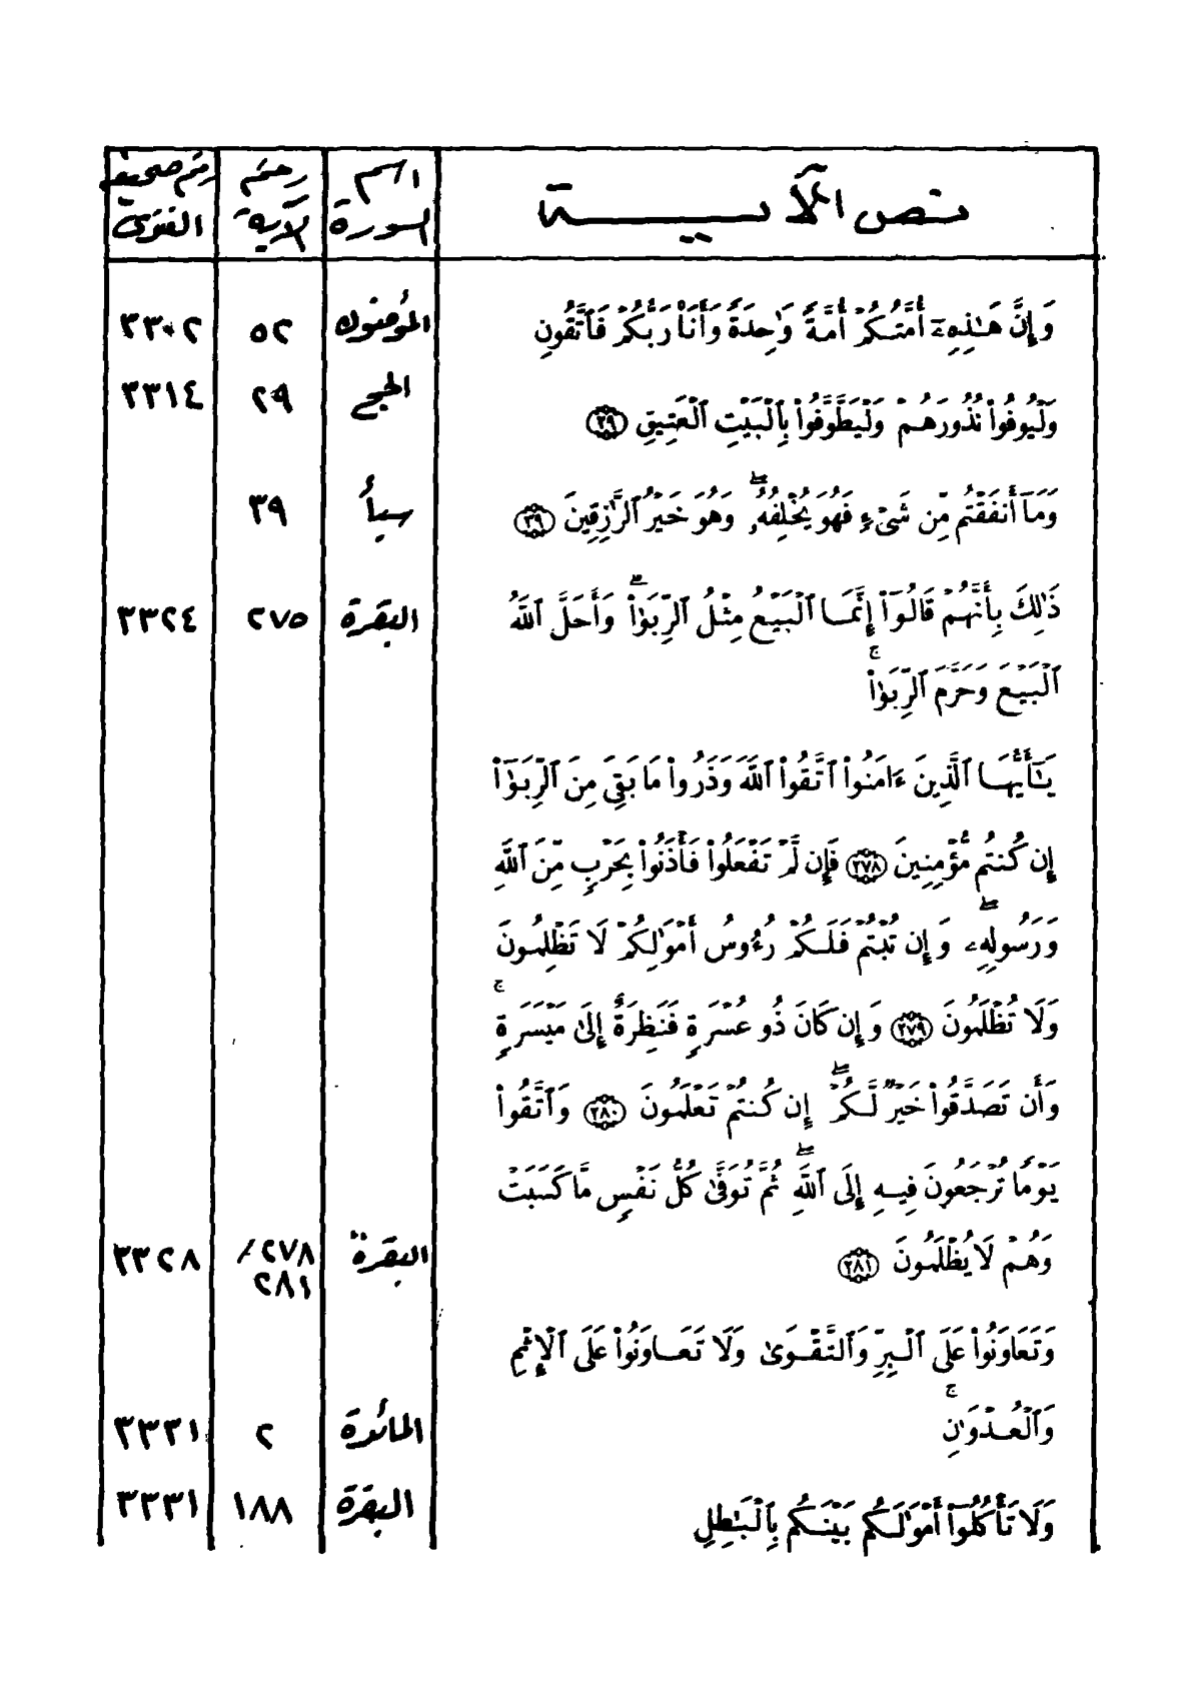 نص الآية اسم السورة رقم الآية رقم صحيفة الفتوى
وَإِنَّ هَٰذِهِۦٓ أُمَّتُكُمْ أُمَّةً وَٰحِدَةً وَأَنَا۠ رَبُّكُمْ فَٱتَّقُونِ المؤمنون ٥٢ ٣٣٠٢
وَلْيُوفُوا۟ نُذُورَهُمْ وَلْيَطَّوَّفُوا۟ بِٱلْبَيْتِ ٱلْعَتِيقِ ﴿٢٩﴾ الحج ٢٩ ٣٣١٤
وَمَآ أَنفَقْتُم مِّن شَىْءٍ فَهُوَ يُخْلِفُهُۥ ۖ وَهُوَ خَيْرُ ٱلرَّٰزِقِينَ ﴿٣٩﴾ سبأ ٣٩
ذَٰلِكَ بِأَنَّهُمْ قَالُوٓا۟ إِنَّمَا ٱلْبَيْعُ مِثْلُ ٱلرِّبَوٰا۟ ۗ وَأَحَلَّ ٱللَّهُ البقرة ٢٧٥ ٣٣٢٤
ٱلْبَيْعَ وَحَرَّمَ ٱلرِّبَوٰا۟ ۚ
يَٰٓأَيُّهَا ٱلَّذِينَ ءَامَنُوا۟ ٱتَّقُوا۟ ٱللَّهَ وَذَرُوا۟ مَا بَقِىَ مِنَ ٱلرِّبَوٰٓا۟
إِن كُنتُم مُّؤْمِنِينَ ﴿٢٧٨﴾ فَإِن لَّمْ تَفْعَلُوا۟ فَأْذَنُوا۟ بِحَرْبٍ مِّنَ ٱللَّهِ
وَرَسُولِهِۦ ۖ وَإِن تُبْتُمْ فَلَكُمْ رُءُوسُ أَمْوَٰلِكُمْ لَا تَظْلِمُونَ
وَلَا تُظْلَمُونَ ﴿٢٧٩﴾ وَإِن كَانَ ذُو عُسْرَةٍ فَنَظِرَةٌ إِلَىٰ مَيْسَرَةٍ ۚ
وَأَن تَصَدَّقُوا۟ خَيْرٌ لَّكُمْ ۖ إِن كُنتُمْ تَعْلَمُونَ ﴿٢٨٠﴾ وَٱتَّقُوا۟
يَوْمًا تُرْجَعُونَ فِيهِ إِلَى ٱللَّهِ ۖ ثُمَّ تُوَفَّىٰ كُلُّ نَفْسٍ مَّا كَسَبَتْ
وَهُمْ لَا يُظْلَمُونَ ﴿٢٨١﴾ البقرة ٢٧٨/ ٣٣٢٨
٢٨١
وَتَعَاوَنُوا۟ عَلَى ٱلْبِرِّ وَٱلتَّقْوَىٰ وَلَا تَعَاوَنُوا۟ عَلَى ٱلْإِثْمِ
وَٱلْعُدْوَٰنِ ۚ المائدة ٢ ٣٣٣١
وَلَا تَأْكُلُوٓا۟ أَمْوَٰلَكُم بَيْنَكُم بِٱلْبَٰطِلِ البقرة ١٨٨ ٣٣٣١